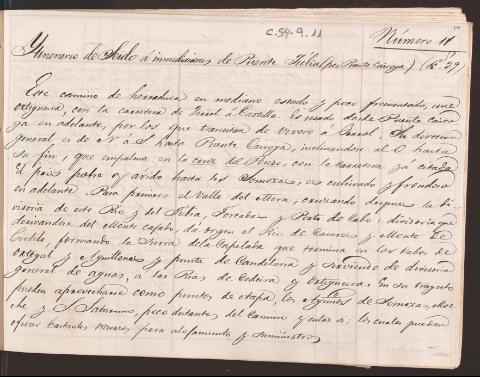 C.54-9.11
Número 11
Ytinerario de Seido á inmediaciones de Puente Jubia (por Puente Caroza) (Kº 29)
Este camino de herradura en mediano estado y poco frecuentado, une
Ortigueira, con la carretera de Ferrol á Castilla. Es usado desde Puente Caro
za en adelante, por los que transitan de Vivero á Ferrol. Su direccion
general es de N á S hasta Puente Caroza, inclinandose al O hasta
su fin, que empalma en la cruz del Pouse, con la carretera yá citada
El pais pobre y arido hasta los Somozas, es cultivado y frondoso
en adelante. Pasa primero el Valle del Mera, cruzando despues la di-
visoria de este Rio y del Jubia, Forcadas y Porto do Cabo: divisoria que
derivandose del monte cajado, da origen al Rio de Casares y Monte
Cortido, formando la Sierra de la Capelada que termina en los cabos de
Ortegal y Aguillones y punta de Candelaria y sirviendo de divisoria
general de aguas, á las Rias de Cedeira y Ortigueira. En su trayecto
pueden aprovecharse como puntos de etapa, los Ayuntos de Somozas, Moe-
che y S Saturnino, poco distantes del Camino y entre si: los cuales pueden
ofrecer bastantes recursos para alojamiento y suministros